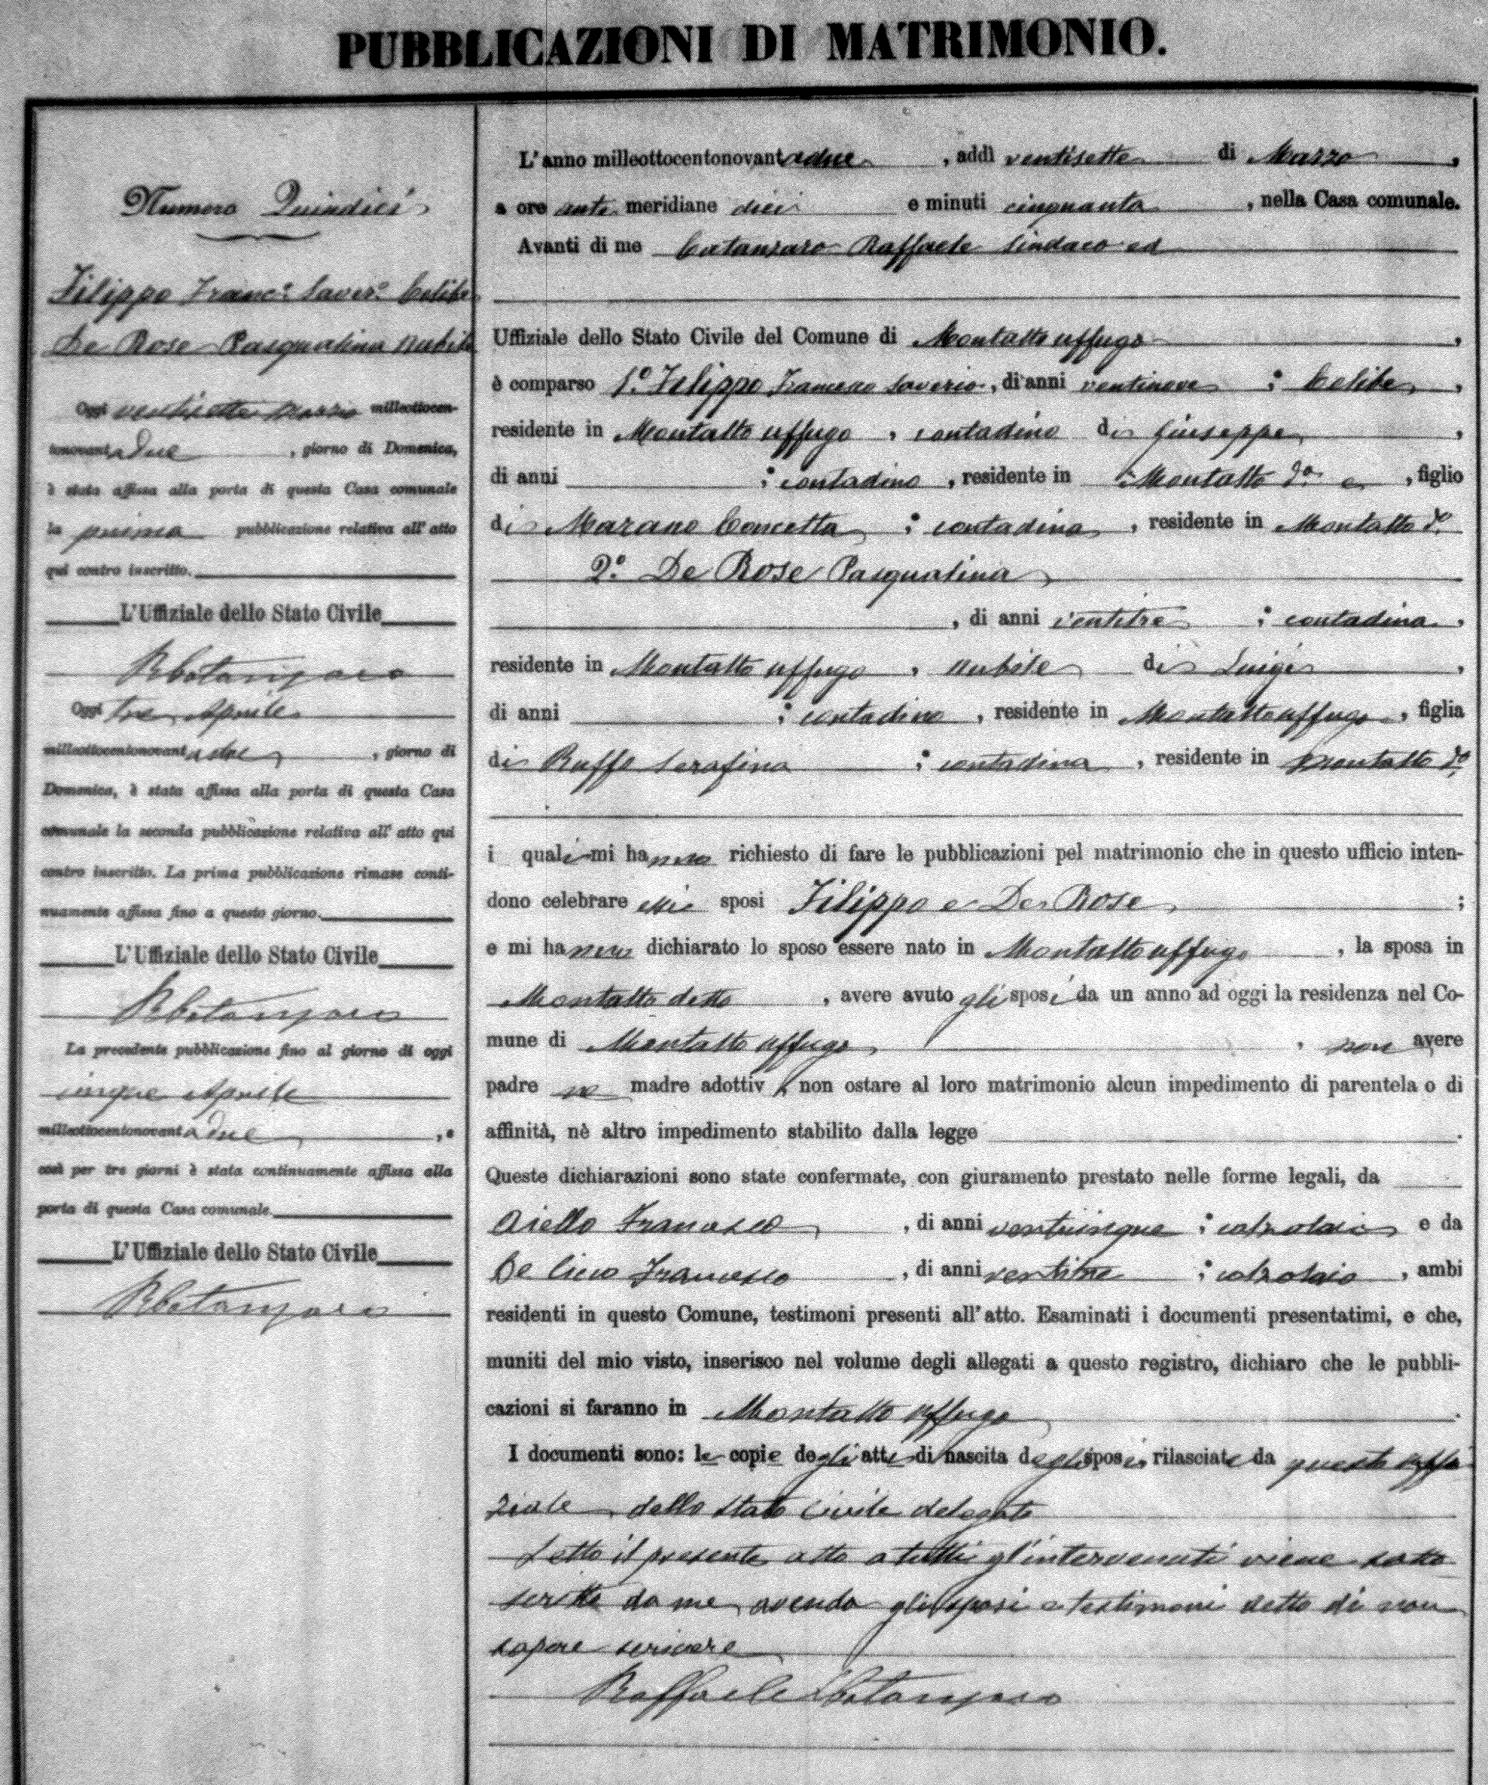 PUBBLICAZIONI DI MATRIMONIO.
Numero Quindici
Filippo Franc.o Saver.o Celibe
De Rose Pasqualina nubile
Oggi ventisette Marzo milleottocen-
tonovantadue, giorno di Domenica,
è stata affissa alla porta di questa Casa comunale
la prima pubblicazione relativa all'atto
qui contro inscritto.
L'Uffiziale dello Stato Civile
RCatanzaro
Oggi tre Aprile
milleottocentonovantadue, giorno di
Domenica, è stata affissa alla porta di questa Casa
comunale la seconda pubblicazione relativa all'atto qui
contro inscritto. La prima pubblicazione rimase conti-
nuamente affissa fino a questo giorno.
L'Uffiziale dello Stato Civile
RCatanzaro
La precedente pubblicazione fino al giorno di oggi
cinque Aprile
milleottocentonovantadue, e
così per tre giorni è stata continuamente affissa alla
porta di questa Casa comunale.
L'Uffiziale dello Stato Civile
RCatanzaro
L'anno milleottocentonovantadue, addì ventisette di Marzo,
a ore anti meridiane dieci e minuti cinquanta, nella Casa comunale.
Avanti di me Catanzaro Raffaele Sindaco ed
Uffiziale dello Stato Civile del Comune di Montalto uffugo,
è comparso 1.o Filippo Francesco Saverio, di anni ventinove ; Celibe,
residente in Montalto uffugo, contadino di Giuseppe,
di anni ; contadino, residente in Montalto d.o e, figlio
di Marano Concetta ; contadina, residente in Montalto d.o
2.o De Rose Pasqualina
, di anni ventitre ; contadina,
residente in Montalto uffugo, nubile di Luigi,
di anni ; contadino, residente in Montalto uffugo, figlia
di Ruffo Serafina ; contadina, residente in Montalto d.o
i quali mi hanno richiesto di fare le pubblicazioni pel matrimonio che in questo ufficio inten-
dono celebrare essi sposi Filippo e De Rose ;
e mi hanno dichiarato lo sposo essere nato in Montalto uffugo, la sposa in
Montalto detto, avere avuto gli sposi da un anno ad oggi la residenza nel Co-
mune di Montalto uffugo, non avere
padre ne madre adottiv non ostare al loro matrimonio alcun impedimento di parentela o di
affinità, nè altro impedimento stabilito dalla legge.
Queste dichiarazioni sono state confermate, con giuramento prestato nelle forme legali, da
Aiello Francesco, di anni venticinque ; calzolaio e da
De Cicco Francesco, di anni ; calzolaio, ambi
residenti in questo Comune, testimoni presenti all'atto. Esaminati i documenti presentatimi, e che,
muniti del mio visto, inserisco nel volume degli allegati a questo registro, dichiaro che le pubbli-
cazioni si faranno in Montalto uffugo.
I documenti sono: le copie degli atti di nascita degli sposi rilasciate da questo uffi
ziale dello stato Civile delegato
Letto il presente atto a tutti gl'intervenuti viene sotto
scritto da me avendo gli sposi e testimoni detto di non
sapere scrivere
Raffaele Catanzaro